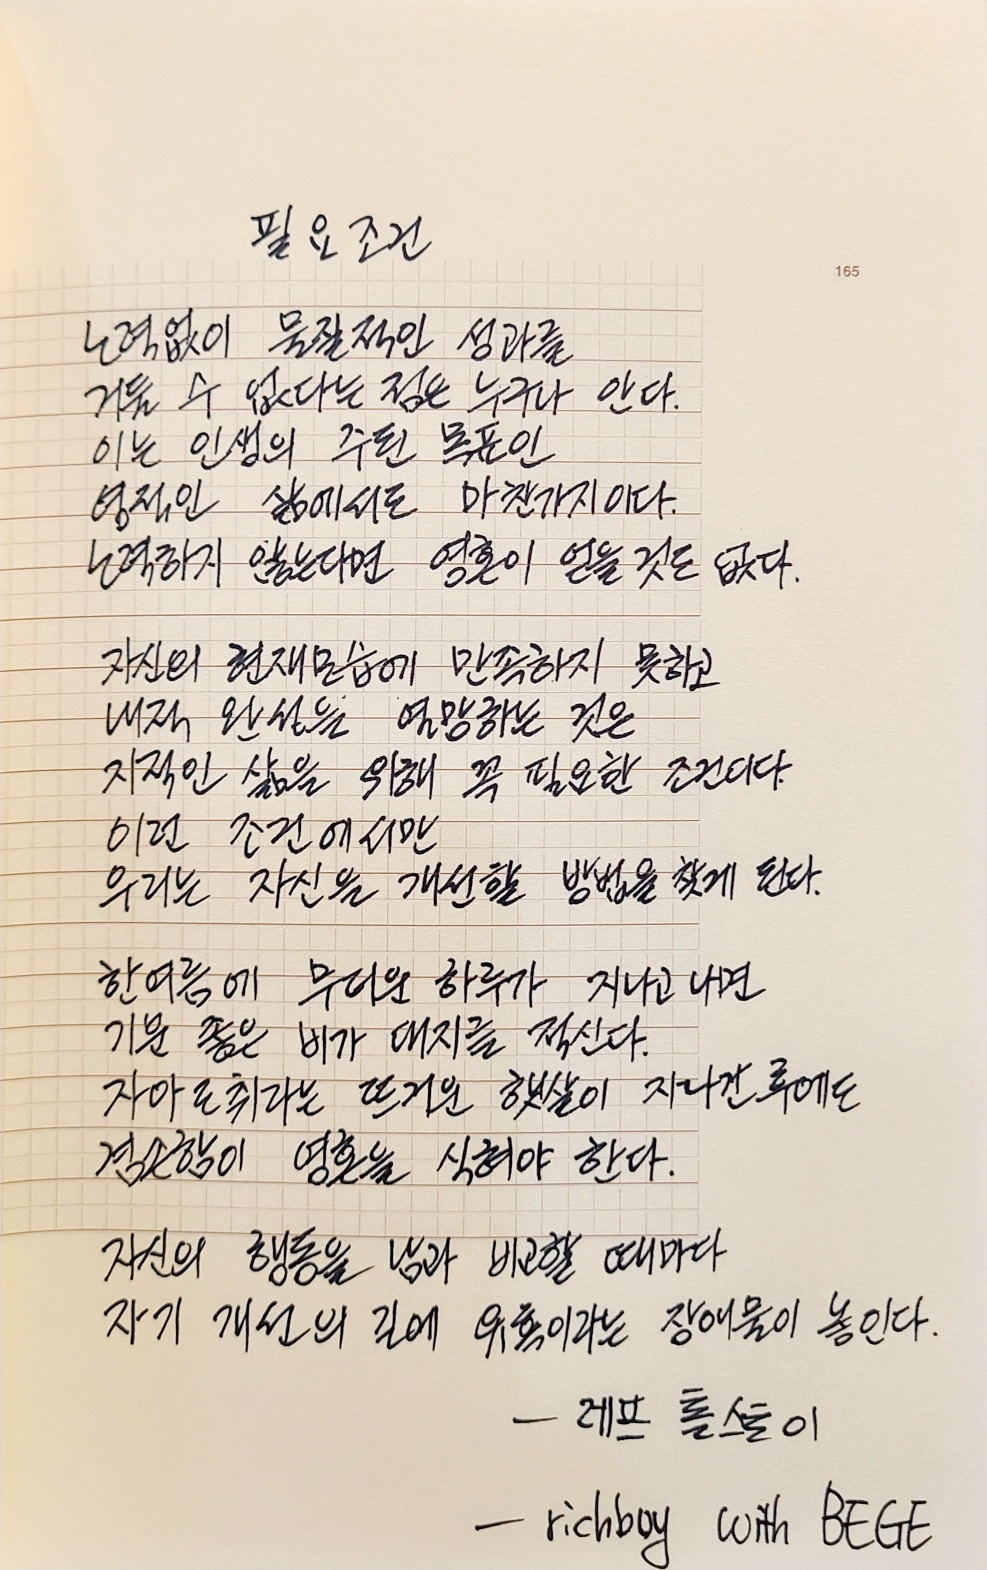 필요조건
165
노력없이 물질적인 성과를
거둘 수 없다는 점은 누구나 안다.
이는 인생의 주된 목표인
영적인 삶에서도 마찬가지이다.
노력하지 않는다면 영혼이 얻을 것도 없다.
자신의 현재모습에 만족하지 못하고
내적 완성을 열망하는 것은
지적인 삶을 위해 꼭 필요한 조건이다.
이런 조건에서만
우리는 자신을 개선할 방법을 찾게 된다.
한여름에 무더운 하루가 지나고 나면
기분 좋은 비가 대지를 적신다.
자아도취라는 뜨거운 햇살이 지나간 후에도
겸손함이 영혼을 식혀야 한다.
자신의 행동을 남과 비교할 때마다
자기 개선의 길에 유혹이라는 장애물이 놓인다.
- 레프 톨스토이
- richboy with BEGE